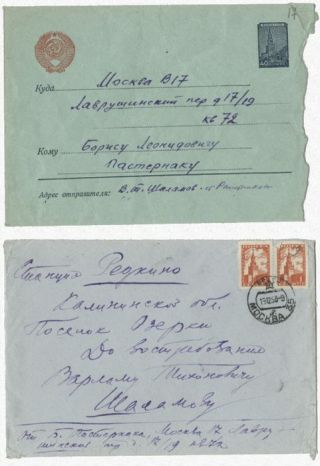 17
40
Куда Москва В17
Лаврушинский пер д 17/19
кв 72
Кому Борису Леонидовичу
Пастернаку
Адрес отправителя: В.Т. Шаламов
Станция Редкино
Калининской обл.
Поселок Озерки
До востребования
Варламу Тихоновичу
Шаламову
МОСКВА
От Б. Пастернака, Москва 17 Лавру-
шинский пер 17/19 кв 72